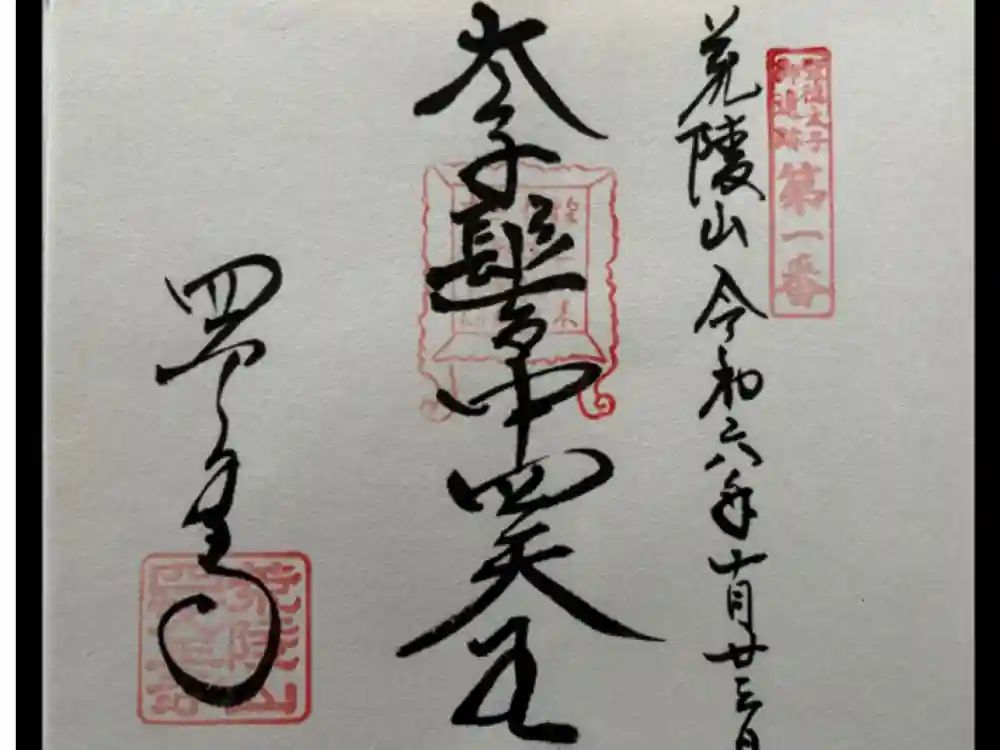 聖徳太子
御遺跡
第一番
荒陵山 令和六年十月廿三日
太子髻中四天王
四天王寺
荒陵山
四天王寺